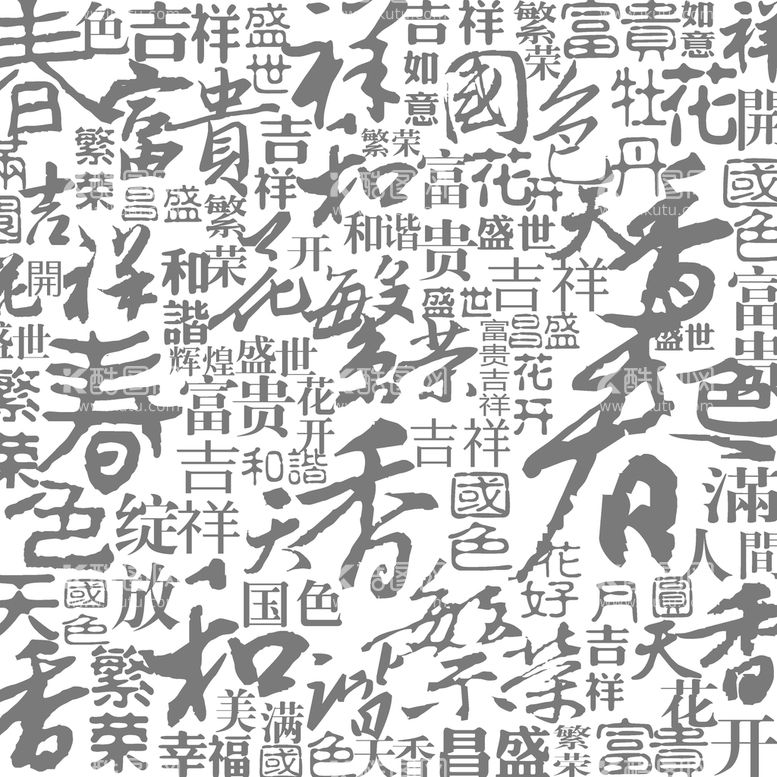 春
色
吉祥
盛世
祥
吉祥
如意
繁荣
富貴
如意
祥
富
貴
國
色
牡丹
花
開
繁荣
吉祥
繁荣
和
富
貴
花开
國色
滿
園
吉
祥
昌盛
繁荣
和谐
盛世
天
香
花
開
和諧
花
开
繁
荣
盛世
吉祥
富貴
盛世
春
辉煌
盛世
富贵
花开
富貴吉祥
昌盛
花开
春
盛世
色
繁荣
吉祥
和諧
吉祥
國色
滿
人間
色
绽放
天
香
花好
月圓
天
香
國色
国色
和
谐
繁
荣
吉祥
天
香
花开
繁荣
美满
幸福
國色
天香
昌盛
繁荣
富貴